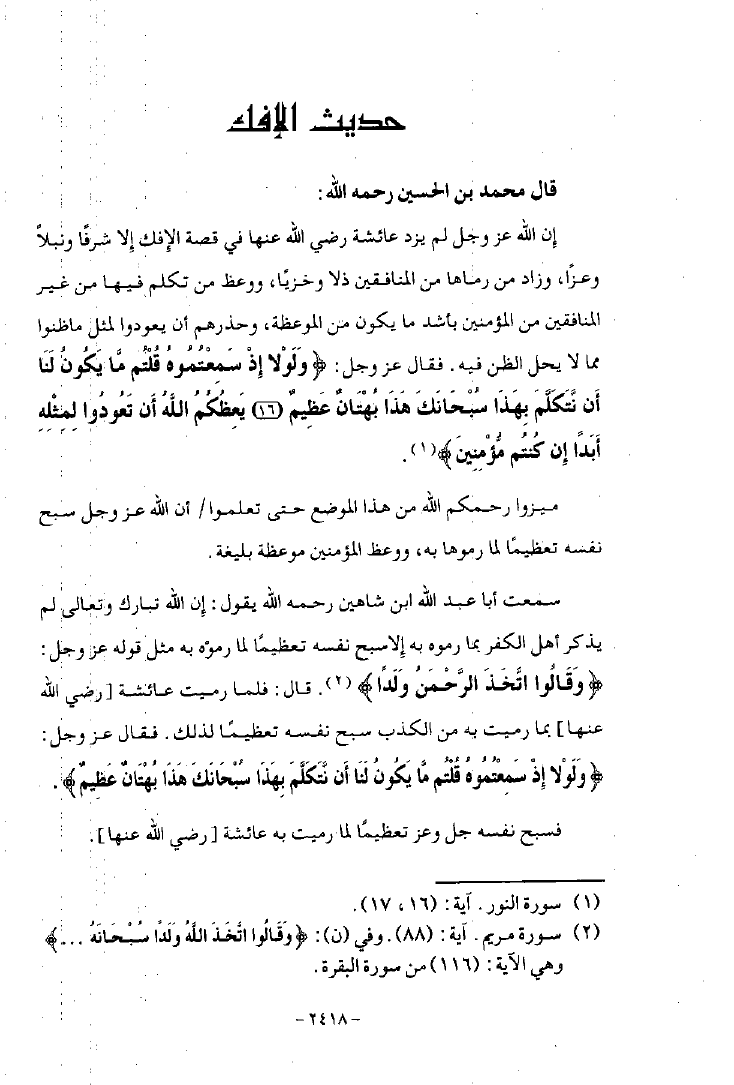 حديث الإفك
قال محمد بن الحسين رحمه الله :
إن الله عز وجل لم يزد عائشة رضي الله عنها في قصة الإفك إلا شرفًا ونبلاً
وعزًا، وزاد من رماها من المنافقين ذلا وخزيًا، ووعظ من تكلم فيها من غير
المنافقين من المؤمنين بأشد ما يكون من الموعظة، وحذرهم أن يعودوا لمثل ماظنوا
مما لا يحل الظن فيه. فقال عز وجل: ﴿ وَلَوْلا إِذْ سَمِعْتُمُوهُ قُلْتُم مَّا يَكُونُ لَنَا
أَن نَّتَكَلَّمَ بِهَذَا سُبْحَانَكَ هَذَا بُهْتَانٌ عَظِيمٌ (١٦) يَعِظُكُمُ اللَّهُ أَن تَعُودُوا لِمِثْلِهِ
أَبَدًا إِن كُنتُم مُّؤْمِنِينَ﴾(١).
ميزوا رحمكم الله من هذا الموضع حتى تعلموا/ أن الله عز وجل سبح
نفسه تعظيمًا لما رموها به، ووعظ المؤمنين موعظة بليغة.
سمعت أبا عبد الله ابن شاهين رحمه الله يقول: إن الله تبارك وتعالى لم
يذكر أهل الكفر بما رموه به إلاسبح نفسه تعظيمًا لما رموْه به مثل قوله عز وجل:
﴿ وَقَالُوا اتَّخَذَ الرَّحْمَنُ وَلَدًا ﴾ (٢). قال: فلما رميت عائشة [رضي الله
عنها] بما رميت به من الكذب سبح نفسه تعظيمًا لذلك. فقال عز وجل:
﴿ وَلَوْلا إِذْ سَمِعْتُمُوهُ قُلْتُم مَّا يَكُونُ لَنَا أَن نَّتَكَلَّمَ بِهَذَا سُبْحَانَكَ هَذَا بُهْتَانٌ عَظِيمٌ﴾.
فسبح نفسه جل وعز تعظيمًا لما رميت به عائشة [رضي الله عنها].
(١) سورة النور. آية: (١٦، ١٧).
(٢) سورة مريم. آية: (٨٨). وفي (ن): ﴿وَقَالُوا اتَّخَذَ اللَّهُ وَلَدًا سُبْحَانَهُ ...﴾
وهي الآية: (١١٦) من سورة البقرة.
-٢٤١٨-